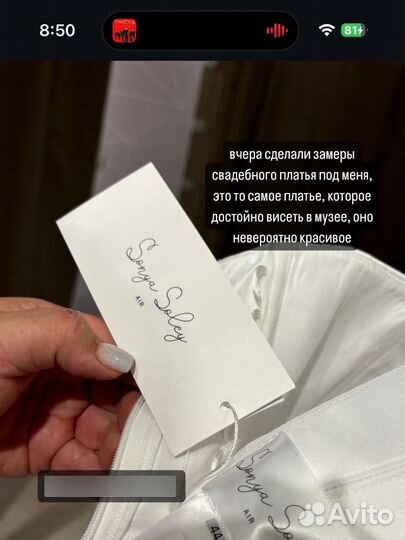 8:50
81
вчера сделали замеры
свадебного платья под меня,
это то самое платье, которое
достойно висеть в музее, оно
невероятно красивое
Sonya Soley
AIR
Sonya So
AIR
44
Avito